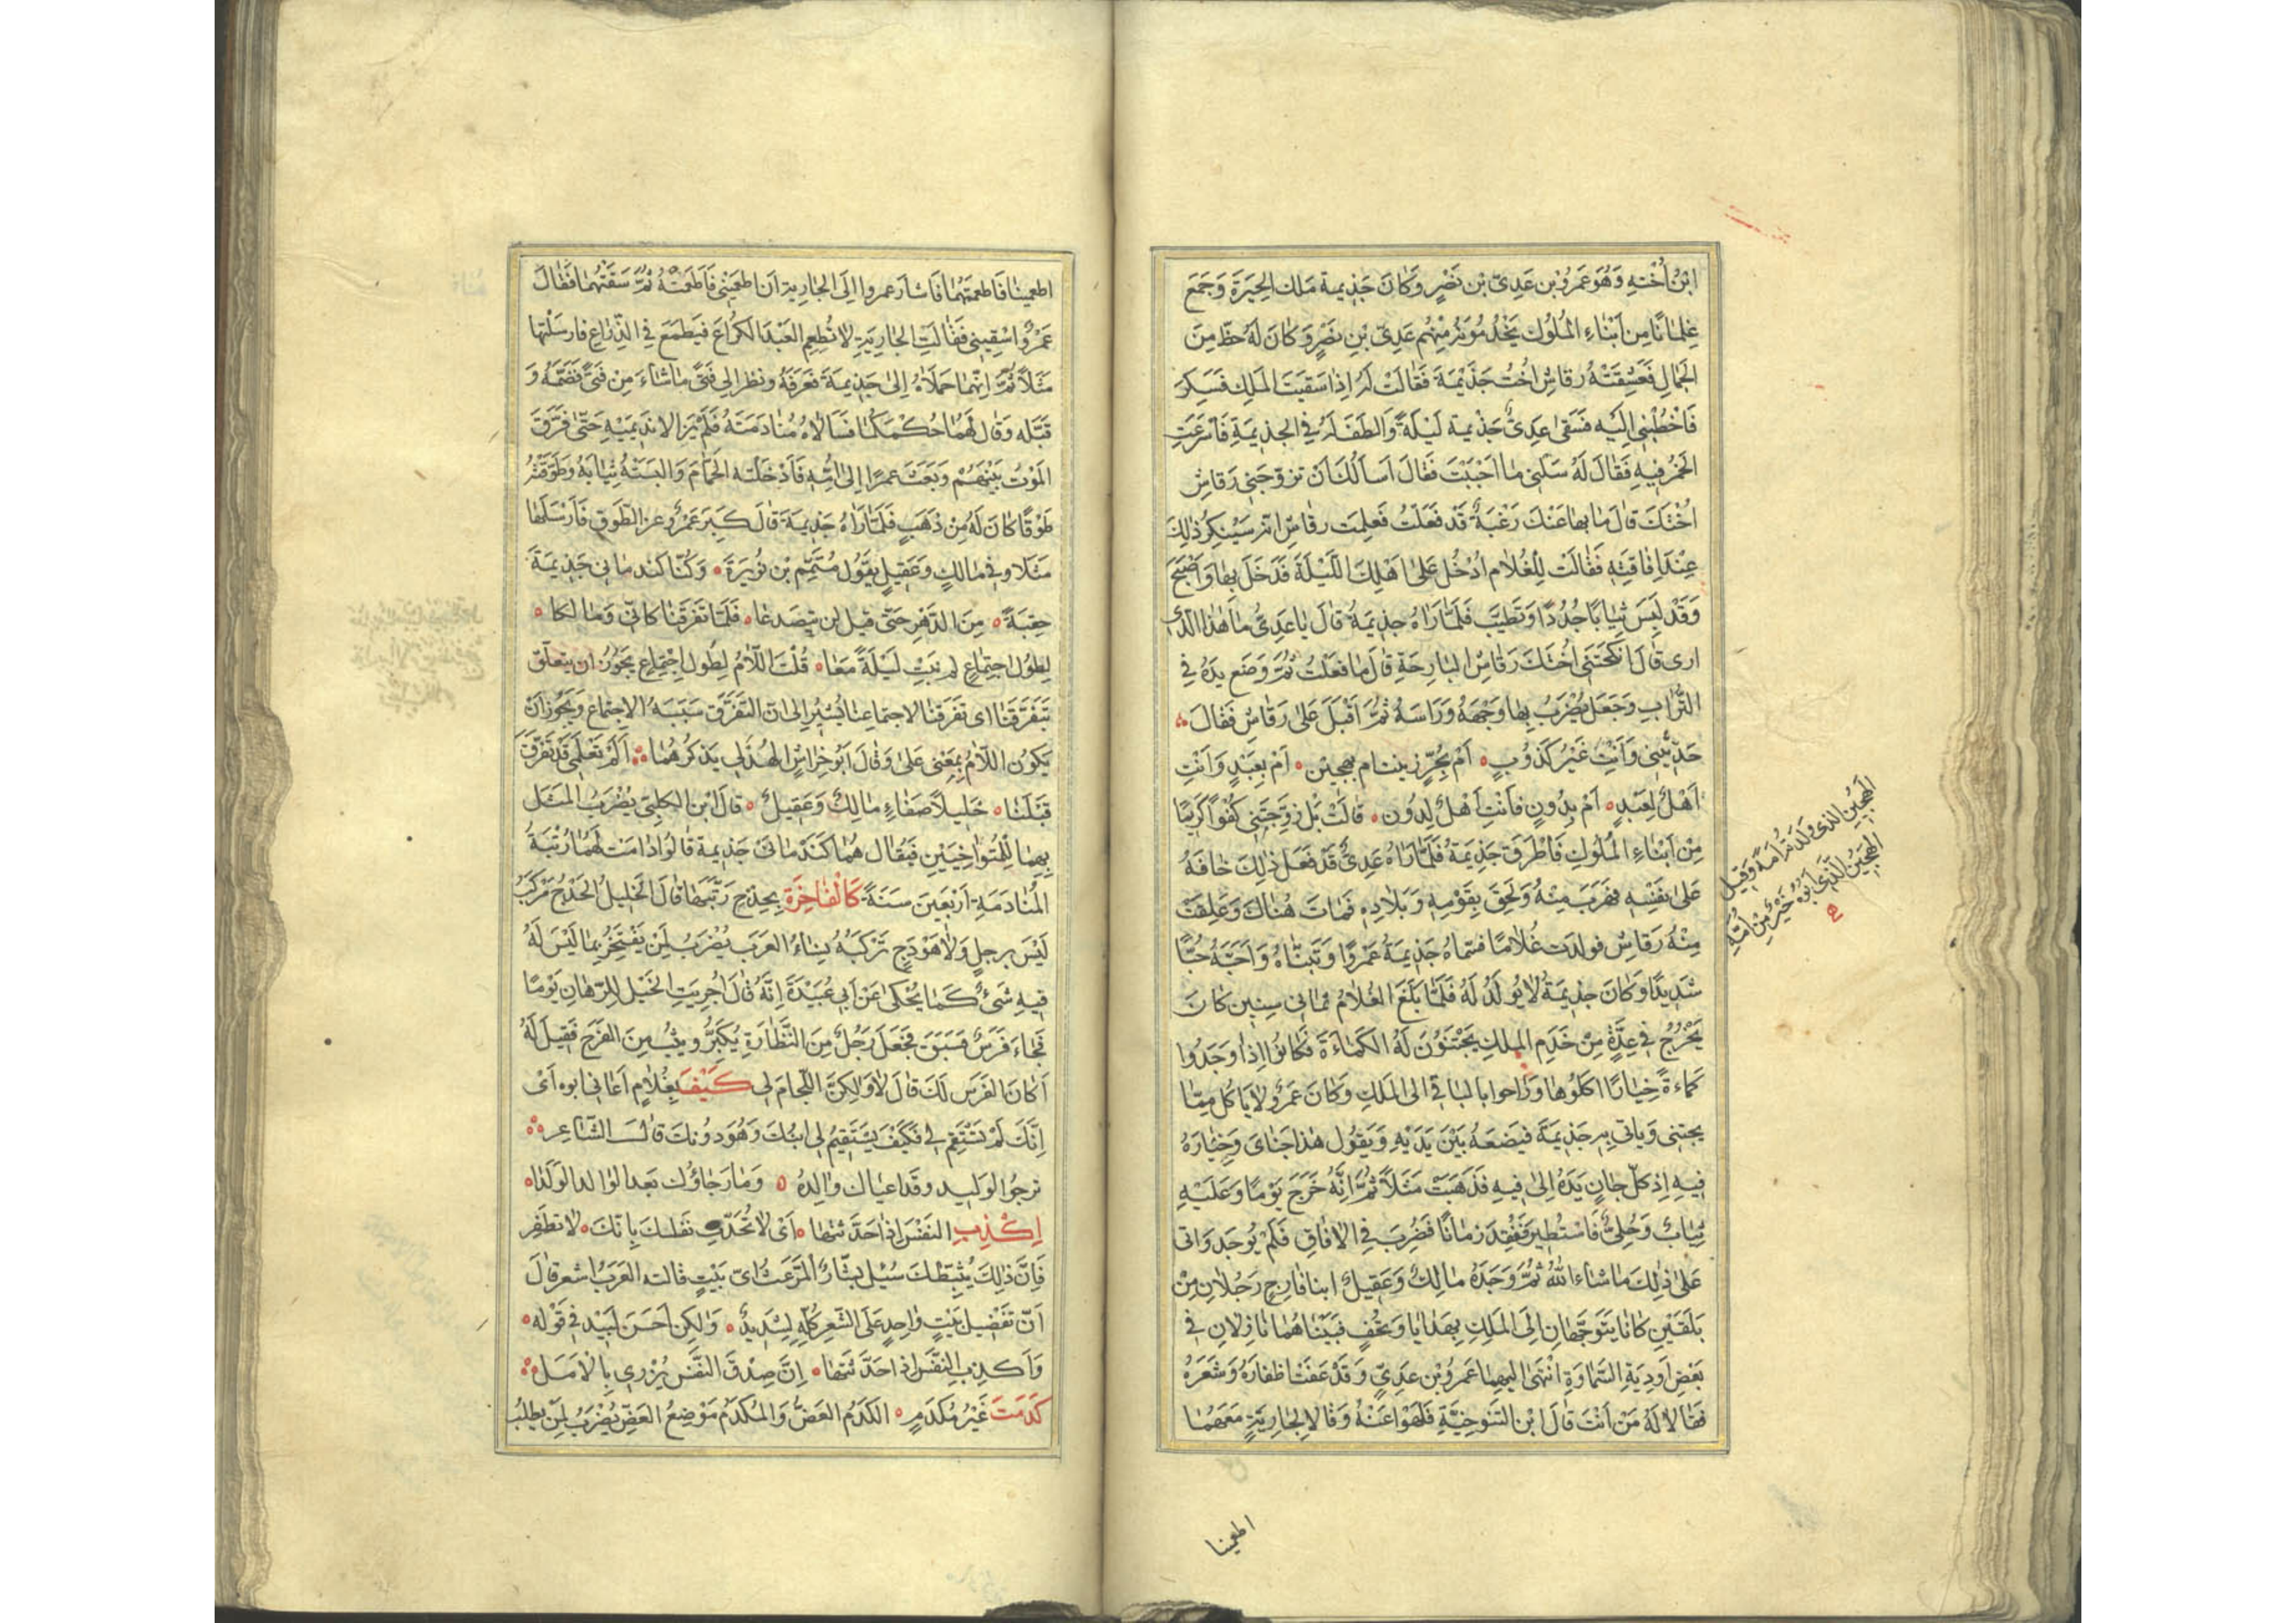 ابْنُ أُخْتِهِ وَهُوَ عَمْرُو بْن عَدِيّ بْن نَصْرٍ وَكَانَ جَذِيمة مَلك الحِيرَةَ وَجَمَعَ
غِلمَانًا مِن اَبْنَاءِ المُلُوك يَخْدُمُونَهُ مِنْهُم عَدِيّ بْنِ نَصْرٍ وَكَانَ لَهُ حَظّ مِنَ
الجَمالِ فَعَشِقَتْهُ رقاشِ اخْتُ جَذِيْمَةَ فَقَالَتْ لَهُ اِذَا سَقَيتَ المَلِكَ فَسَكِرَ
فَاخْطُبْنِي اِلَيْهِ فَسَقى عَدِيٌّ جَذْيمة لَيْلَةً وَالطَفَ لَهُ فِي الجذِيمَةِ فَاَسْرَعَتِ
الخَمْرُ فِيهِ فَقَالَ لَهُ سَلْنِي مَا اَحْبَبْتَ فَقَالَ اَسَالُكَ اَنْ تزوّجَنِي رَقاشِ
اخْتَكَ قالَ مَا بِهَا عَنْكَ رَغْبَةٌ قَدْ فَعَلتُ فَعلِمَت رقاشِ انه سَيُنكِرُ ذلِكَ
عِنْدَ اِفاقَتِهِ فَقَالَتْ لِلْغُلامِ ادْخُل عَلىَ اهْلِكَ اللَّيْلَةَ فَدَخَلَ بِهَا وَاَصْبَحَ
وَقَدْ لَبِسَ ثِيَابًا جُدُدًا وَتَطَيَّبَ فَلَمَّا رَاهُ جذِيمَةُ قَالَ يَا عَدِيُّ مَا هَذا الَّذِي
ارى قَالَ اَنكَحْتَنِي اُخْتَكَ رَقَاشِ البَارِحَةِ قالَ مَا فعَلْتُ ثُمَّ وَضَع يدَهُ فِي
التُّرابِ وَجَعَلَ يضْرَبُ بِها وَجْهَهُ وَرَاسَهُ ثُمَّ اَقْبَلَ عَلىَ رَقَاشِ فَقَالَ
حَدِّثِينِي وَاَنْتِ غَيْرُ كَذُوبٍ اَمْ بِحُرٍّ زينت ام بِهَجِين اَمْ بِعَبْدٍ وَاَنْتِ
اَهْلٌ لِعَبْدٍ اَمْ بِدُونٍ فاَنْتِ اَهْلٌ لِدُون قَالَتْ بَل زَوَّجْتَنِي كُفْوًا كَرِيمًا
مِنْ اَبْنَاءِ المُلُوكِ فَاَطْرَقَ جَذِيمَةُ فَلَمَّا رَاهُ عَدِيٌّ قَدْ فَعَلَ ذلِكَ خَافَهُ
عَلىَ نَفْسِهِ فهَرَبَ مِنْهُ وَلَحِقَ بِقَوْمِهِ وَبِلادِهِ فَمَاتَ هُناكَ وَعَلِقَتْ
مِنْهُ رَقاشِ فولدَت غُلامًا فَسَمَّاهُ جَذِيمَةُ عَمْروًا وَتَبَنَّاهُ وَاَحَبَّهُ حُبًّا
شَدِيدًا وَكَانَ جذِيمَةُ لا يُولَدُ لَهُ فَلَمَّا بَلَغَ الغُلامُ ثماني سِنِين كان
يَخْرُجُ فِي عِدَّةٍ مِنْ خَدَمِ المِلكِ يَجْتَنُونَ لَهُ الكَمَاءَةَ فَكَانُوا اِذَا وَجَدُوا
كَمَاءةً خِيَارًا اكَلُوهَا وَرَاحوا بِالبَاقِي الى المَلكِ وَكَانَ عَمرٌو لا يَاكُل مِمَّا
يجتنى وَياتِي بِهِ جَذِيمَةَ فيَضَعَهُ بَيْنَ يَدَيْهِ وَيَقُول هٰذا جَنَايَ وَخِيَارَهُ
فِيهِ اِذ كلّ جَانٍ يَدَهُ اِلىَ فِيهِ فَذَهَبَتْ مَثَلًا ثُمَّ اِنَّهُ خَرَجَ يَوْمًا وَعَلَيْهِ
ثِيَابٌ وَحُلِيٌّ فَاسْتُطِيرَ فَفُقِدَ زمَانًا فَضُرِبَ فِي الافَاقِ فَلَمْ يُوجَد وَاتى
عَلى ذلِكَ مَا شاءَ اللهُ ثُمَّ وَجَدَهُ مَالِكٌ وَعَقِيلٌ ابنا فارِجٍ رَجُلانِ مِنْ
بَلقَيْنِ كَانَا يَتَوَجَّهَانِ اِلَى المَلِكِ بِهَدايَا وَتُحَفٍ فَبَيْنَاهُمَا نَازِلانِ فِي
بَعْضِ اَودِيَةِ السَّمَاوَةِ انْتَهَى اليهِمَا عَمْرُو بْن عَدِيٍّ وَقَدْ عَفَتْ اظفَارُهُ وَشَعَرُهُ
فَقَالا لَهُ مَنْ اَنْتَ قَالَ ابْن التَّنُوخِيَّةِ فَلَهَوْا عَنْهُ وَقَالا لِجَارِيَةٍ مَعَهُمَا
الهَجِين الذى ولدته امَة وَقيل
الهَجِينُ الَّذِي اَبُوهُ خَيْرٌ مِنْ اُمِّهِ
اطعمينا
اطعِمِينَا فَاطعَمَتْهُمَا فَاشَارَ عمروا اِلَى الجَارِيةِ اَن اطعِمِيْنِي فَاَطْعَمَتْهُ ثُمَّ سَقَتْهُمَا فَقَالَ
عَمْرٌو اسْقِينِي فَقَالَتِ الجَارِيَةِ لا تُطعِم العَبْدَ الكُرَاعَ فَيَطمَعَ فِي الذِّرَاعِ فارسَلَتْها
مَثَلًا ثُمَّ اِنَّهُمَا حَمَلاهُ اِلىَ جَذِيمَةَ فَعَرَفَهُ وَنَظَرَ اِلى فَتىً مَا شاءَ مِنْ فَتىً فَضَمَّهُ وَ
قَبَّلَه وَقَالَ لَهُمَا حُكْمَكُمَا فَسَالاهُ مُنَادَمَتَهُ فَلَمْ يَزَالا نَدِيمَيْهِ حَتَّى فَرَّقَ
المَوْتُ بَيْنَهُمْ وَبَعَثَ عمرًا اِلى اُمِّهِ فَاَدْخَلَتْه الحَمَّامَ وَالبَسَتْهُ ثِيَابَهُ وَطَوَّقَتْهُ
طَوْقًا كانَ لَهُ مِنْ ذَهَبٍ فَلَمَّا رَاهُ جَذِيمَةَ قَالَ كَبِرَ عَمْرٌو عن الطَوق فَارْسَلَهَا
مَثَلا وَفِي مَالِكٍ وَعَقِيلٍ يقُول مُتَمِّم بْن نُوَيرَةَ وَكُنَّا كَنَدمَاني جَذِيمَةَ
حِقبَةً مِنَ الدَّهْرِ حَتَّى قِيل لن يتصَدعَا فَلَمَّا تَفَرَّقْنَا كَانِّي وَمَالكا
لِطُولِ اجتِمَاعٍ لم نَبِتْ لَيْلَةً مَعَا قُلْتُ اللَّامُ لِطُولِ اجْتِمَاعٍ يَجُوزُ ان يتعلّق
بِتَفَرَّقنَا اى تَفَرَّقنَا لاجتماعِنَا يُشِيرُ اِلى انّ التَّفَرُّق سَبَبَهُ الاِجتِمَاع وَيَجُوزُ اَنْ
يَكونَ اللَّامُ بِمَعْنى عَلىَ وَقَالَ اَبُو خِراشٍ الهُذَلِي يَذكُرهُمَا اَلَمْ تَعْلَمِي قَدْ تَفَرَّقَ
قَبْلَنَا خَلِيلا صَفَاءٍ مَالِكٌ وَعَقِيلٌ قَالَ ابْن الكَلبِيّ يُضْرَبُ المَثَل
بِهِمَا لِلمُتَواخِيَيْنِ فَيُقَال هُمَا كَنَدْمَانَيْ جَذِيمَة قَالُوا دَامَت لَهُمَا رُتْبَةُ
المُنَادَمَةِ اَرْبَعِينَ سَنَةً كَالْفَاخِرَةِ بِحِدْجِ رَبَّتِهَا قَالَ الخَلِيلُ الحِدْجُ مَرْكَبٌ
لَيْسَ بِرَحلٍ وَلا هَوْدَجٍ تَرْكَبُهُ نِسَاءُ العَرَب يُضْرَبُ لِمَنْ يَفْتَخِرُ بِمَا لَيْسَ لَهُ
فِيهِ شَئٌ كَمَا يُحْكَى عَنْ اَبِي عُبَيْدَةَ اِنَّهُ قَالَ اُجْرِيَتِ الخَيْل لِلرِّهَانِ يَوْمًا
فَجَاءَ فَرَسٌ فَسَبَقَ فَجَعَلَ رَجُلٌ مِنَ النَّظَّارَةِ يُكَبِّرُ وَيثِبُ مِنَ الفَرَحِ فَقِيلَ لَهُ
اَكَانَ الفَرَس لَكَ قَالَ لا وَلكِنَّ اللِّجَامَ لِي كَيْفَ بِغُلامٍ اَعَانِي ابوه اَيْ
اِنَّكَ لَمْ تَسْتَقِمْ لِي فَكَيْفَ يَسْتَقِيمُ لِي ابْنُكَ وَهُوَ دُونَكَ قَالَ الشَاعِر
تَرجُوا الوَلِيد وَقَد اعيَاك وَالِدُهُ وَمَا رَجَاؤُك بَعدَ الوَالد الوَلَدَا
اِكْذِبِ النَفْسَ اِذَا حَدَّثتَهَا اَىْ لا تُحَدِّث نَفسَكَ بِاَنّكَ لا تَظفَر
فَاِنَّ ذَلِكَ يُثَبِّطُكَ سُئِل بَشَّارُ المُرَعَّثُ اىّ بَيْتٍ قَالته العَرَبُ اشعر قَالَ
اَنّ تَفْضِيل بَيْتٍ وَاحِدٍ عَلَى الشِّعْرِ كُلِّهِ لشَدِيدٌ وَلٰكِن اَحْسَنَ لَبِيْد فِي قَوْلِه
وَاَكذِب النَّفْسَ اِذَا حَدَّثتَهَا اِنَّ صِدْقَ النَّفْس يُزْرِي بِالاَمَلِ
كَدَمْتَ غَيْرَ مُكدَمٍ الكَدَمُ العَضُّ وَالمُكدَمُ مَوْضِعُ العَضِّ يُضْرَبُ لِمَنْ يطلبُ